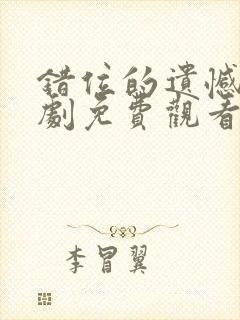 錯位的遺憾
劇免費觀看
李冒翼